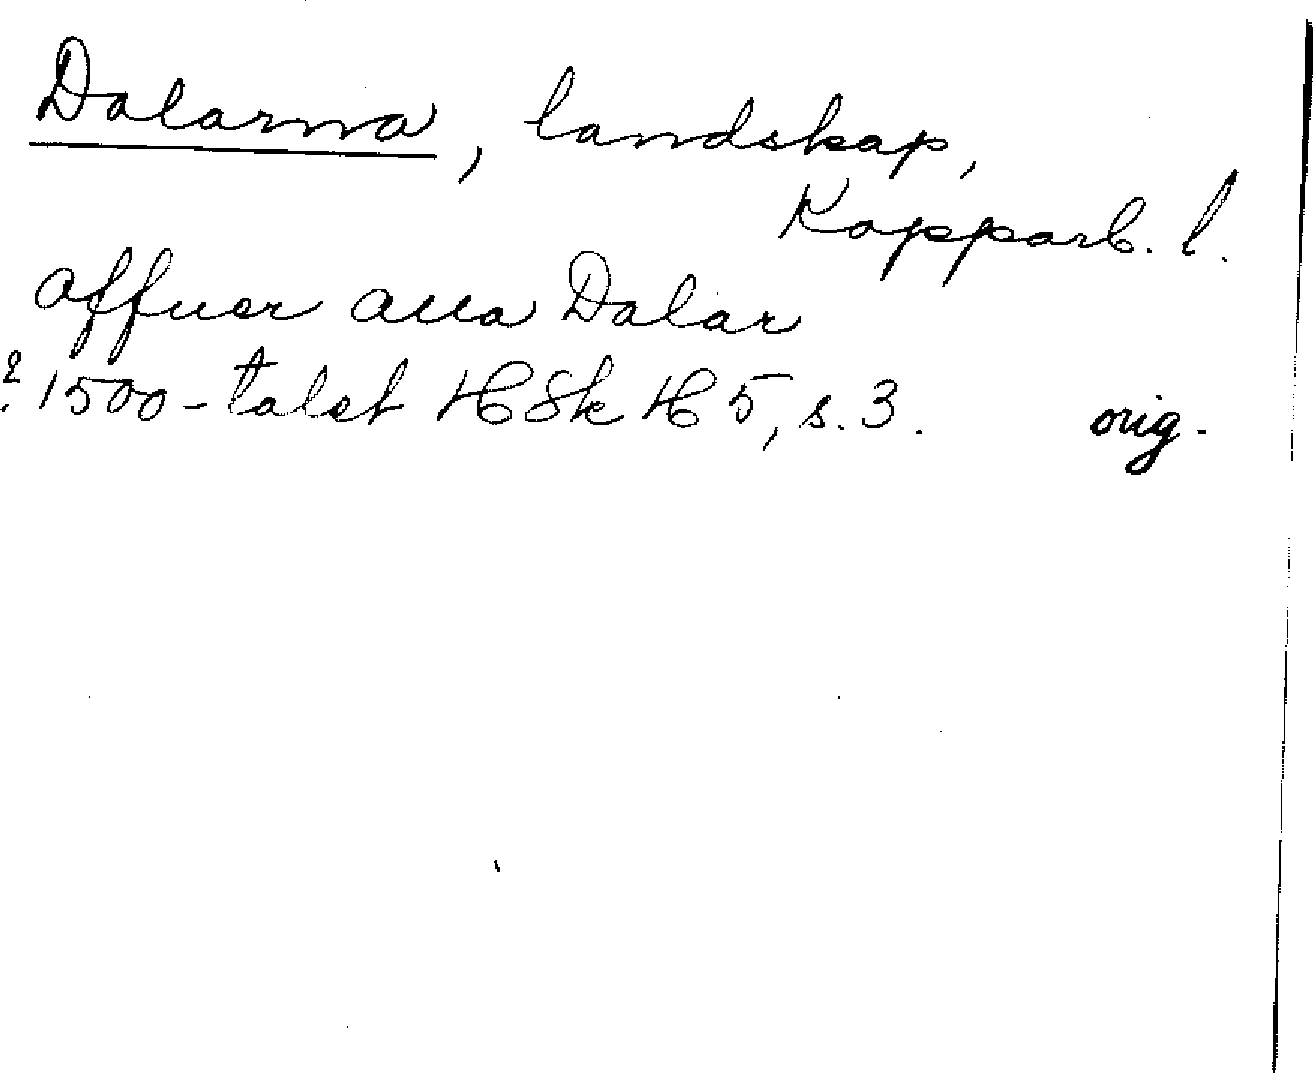 Dalarna, landskap,
Kopparb. l.
affuer alla Dalar
? 1500-talet HSk H 5, s. 3. orig.